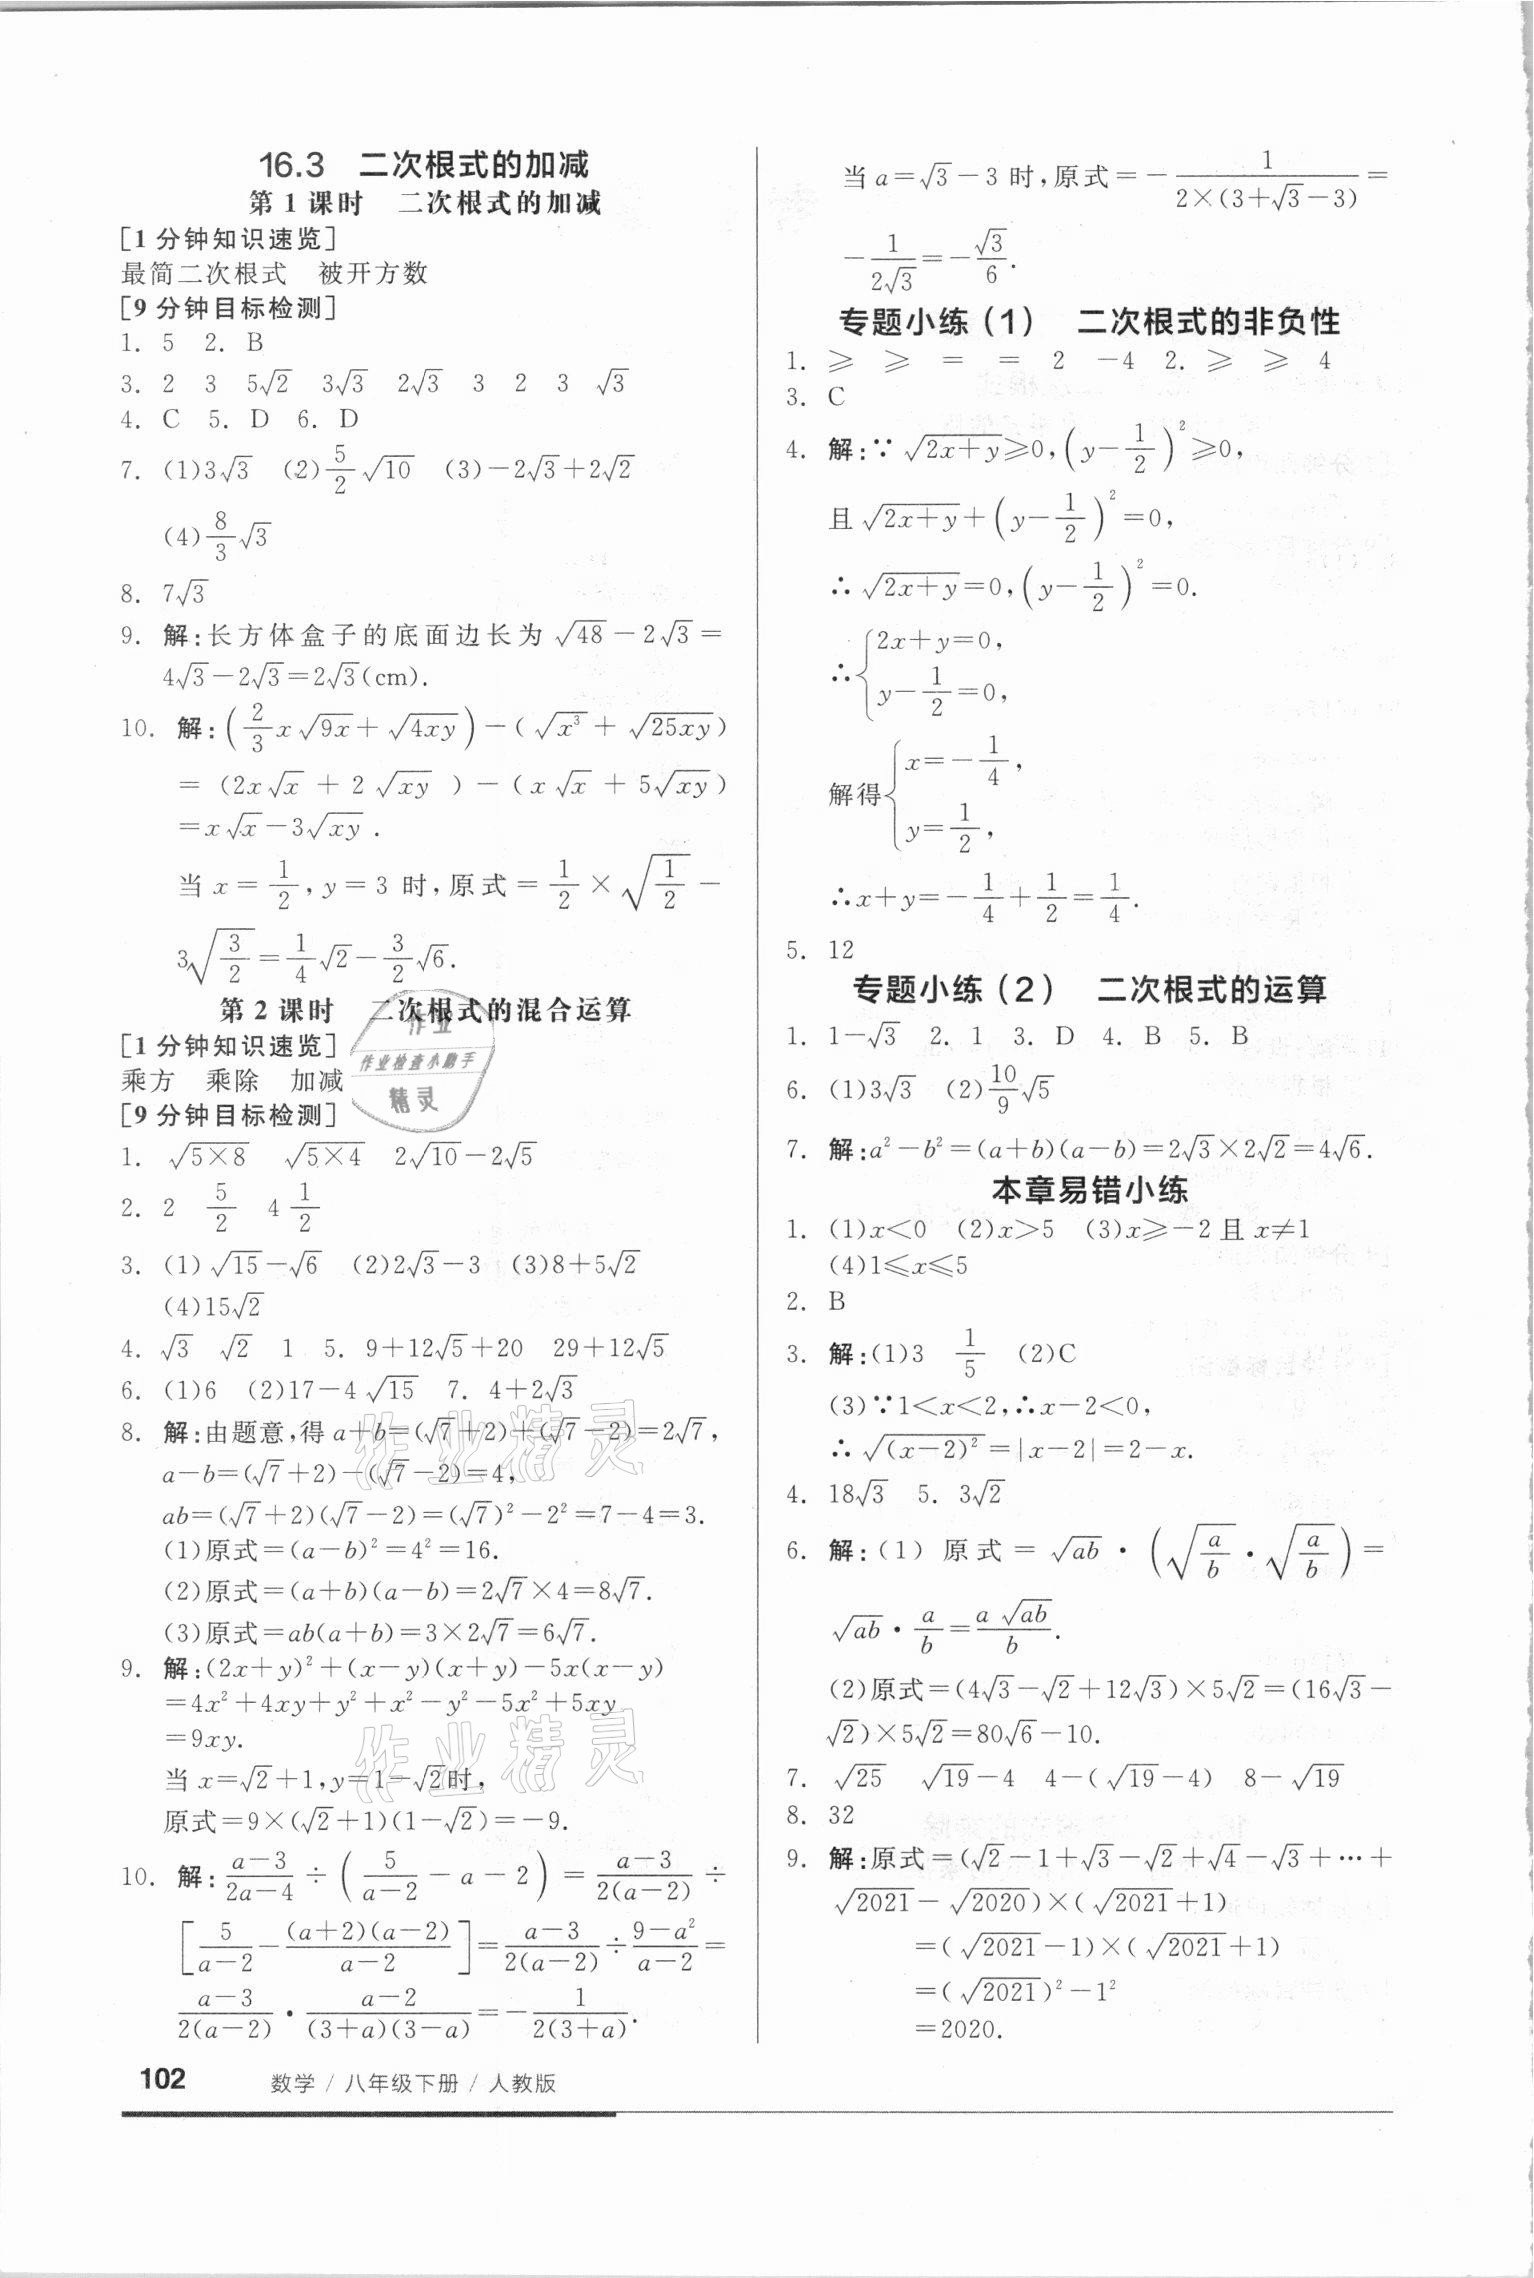 16.3 二次根式的加减
第1课时 二次根式的加减
[1分钟知识速览]
最简二次根式 被开方数
[9分钟目标检测]
1. 5 2. B
3. 2 3 5√2 3√3 2√3 3 2 3 √3
4. C 5. D 6. D
7. (1)3√3 (2)5/2√10 (3)-2√3+2√2
(4)8/3√3
8. 7√3
9. 解:长方体盒子的底面边长为√48-2√3=
4√3-2√3=2√3(cm).
10. 解:(2/3x√(9x)+√(4xy))-(√(x³)+√(25xy))
=(2x√x+2√(xy))-(x√x+5√(xy))
=x√x-3√(xy).
当x=1/2,y=3时,原式=1/2×√(1/2)-
3√(3/2)=1/4√2-3/2√6.
第2课时 二次根式的混合运算
[1分钟知识速览]
乘方 乘除 加减
[9分钟目标检测]
1. √(5×8) √(5×4) 2√10-2√5
2. 2 5/2 4 1/2
3. (1)√15-√6 (2)2√3-3 (3)8+5√2
(4)15√2
4. √3 √2 1 5. 9+12√5+20 29+12√5
6. (1)6 (2)17-4√15 7. 4+2√3
8. 解:由题意,得a+b=(√7+2)+(√7-2)=2√7,
a-b=(√7+2)-(√7-2)=4,
ab=(√7+2)(√7-2)=(√7)²-2²=7-4=3.
(1)原式=(a-b)²=4²=16.
(2)原式=(a+b)(a-b)=2√7×4=8√7.
(3)原式=ab(a+b)=3×2√7=6√7.
9. 解:(2x+y)²+(x-y)(x+y)-5x(x-y)
=4x²+4xy+y²+x²-y²-5x²+5xy
=9xy.
当x=√2+1,y=1-√2时,
原式=9×(√2+1)(1-√2)=-9.
10. 解:(a-3)/(2a-4)÷(5/(a-2)-a-2)=(a-3)/(2(a-2))÷
[5/(a-2)-((a+2)(a-2))/(a-2)]=(a-3)/(2(a-2))÷(9-a²)/(a-2)=
(a-3)/(2(a-2))·(a-2)/((3+a)(3-a))=-1/(2(3+a)).
当a=√3-3时,原式=-1/(2×(3+√3-3))=
-1/(2√3)=-√3/6.
专题小练(1) 二次根式的非负性
1. ≥ ≥ = = 2 -4 2. ≥ ≥ 4
3. C
4. 解:∵√(2x+y)≥0,(y-1/2)²≥0,
且√(2x+y)+(y-1/2)²=0,
∴√(2x+y)=0,(y-1/2)²=0.
∴{2x+y=0,
y-1/2=0,
解得{x=-1/4,
y=1/2,
∴x+y=-1/4+1/2=1/4.
5. 12
专题小练(2) 二次根式的运算
1. 1-√3 2. 1 3. D 4. B 5. B
6. (1)3√3 (2)10/9√5
7. 解:a²-b²=(a+b)(a-b)=2√3×2√2=4√6.
本章易错小练
1. (1)x<0 (2)x>5 (3)x≥-2且x≠1
(4)1≤x≤5
2. B
3. 解:(1)3 1/5 (2)C
(3)∵1<x<2,∴x-2<0,
∴√((x-2)²)=|x-2|=2-x.
4. 18√3 5. 3√2
6. 解:(1)原式=√(ab)·(√(a/b)·√(a/b))=
√(ab)·a/b=a√(ab)/b.
(2)原式=(4√3-√2+12√3)×5√2=(16√3-
√2)×5√2=80√6-10.
7. √25 √19-4 4-(√19-4) 8-√19
8. 32
9. 解:原式=(√2-1+√3-√2+√4-√3+…+
√2021-√2020)×(√2021+1)
=(√2021-1)×(√2021+1)
=(√2021)²-1²
=2020.
作业
作业检查小助手
精灵
作业精灵
作业精灵
102 数学/八年级下册/人教版